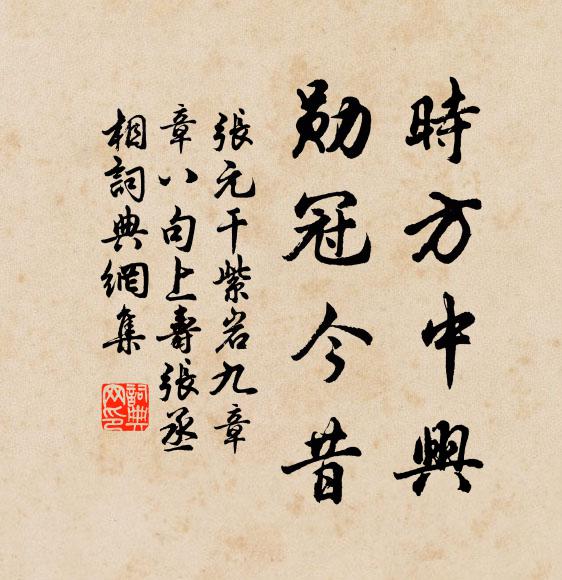 時方中興
勛冠今昔
張元干紫岩九章
章八句上壽張丞
相詞典網集
詞典網印